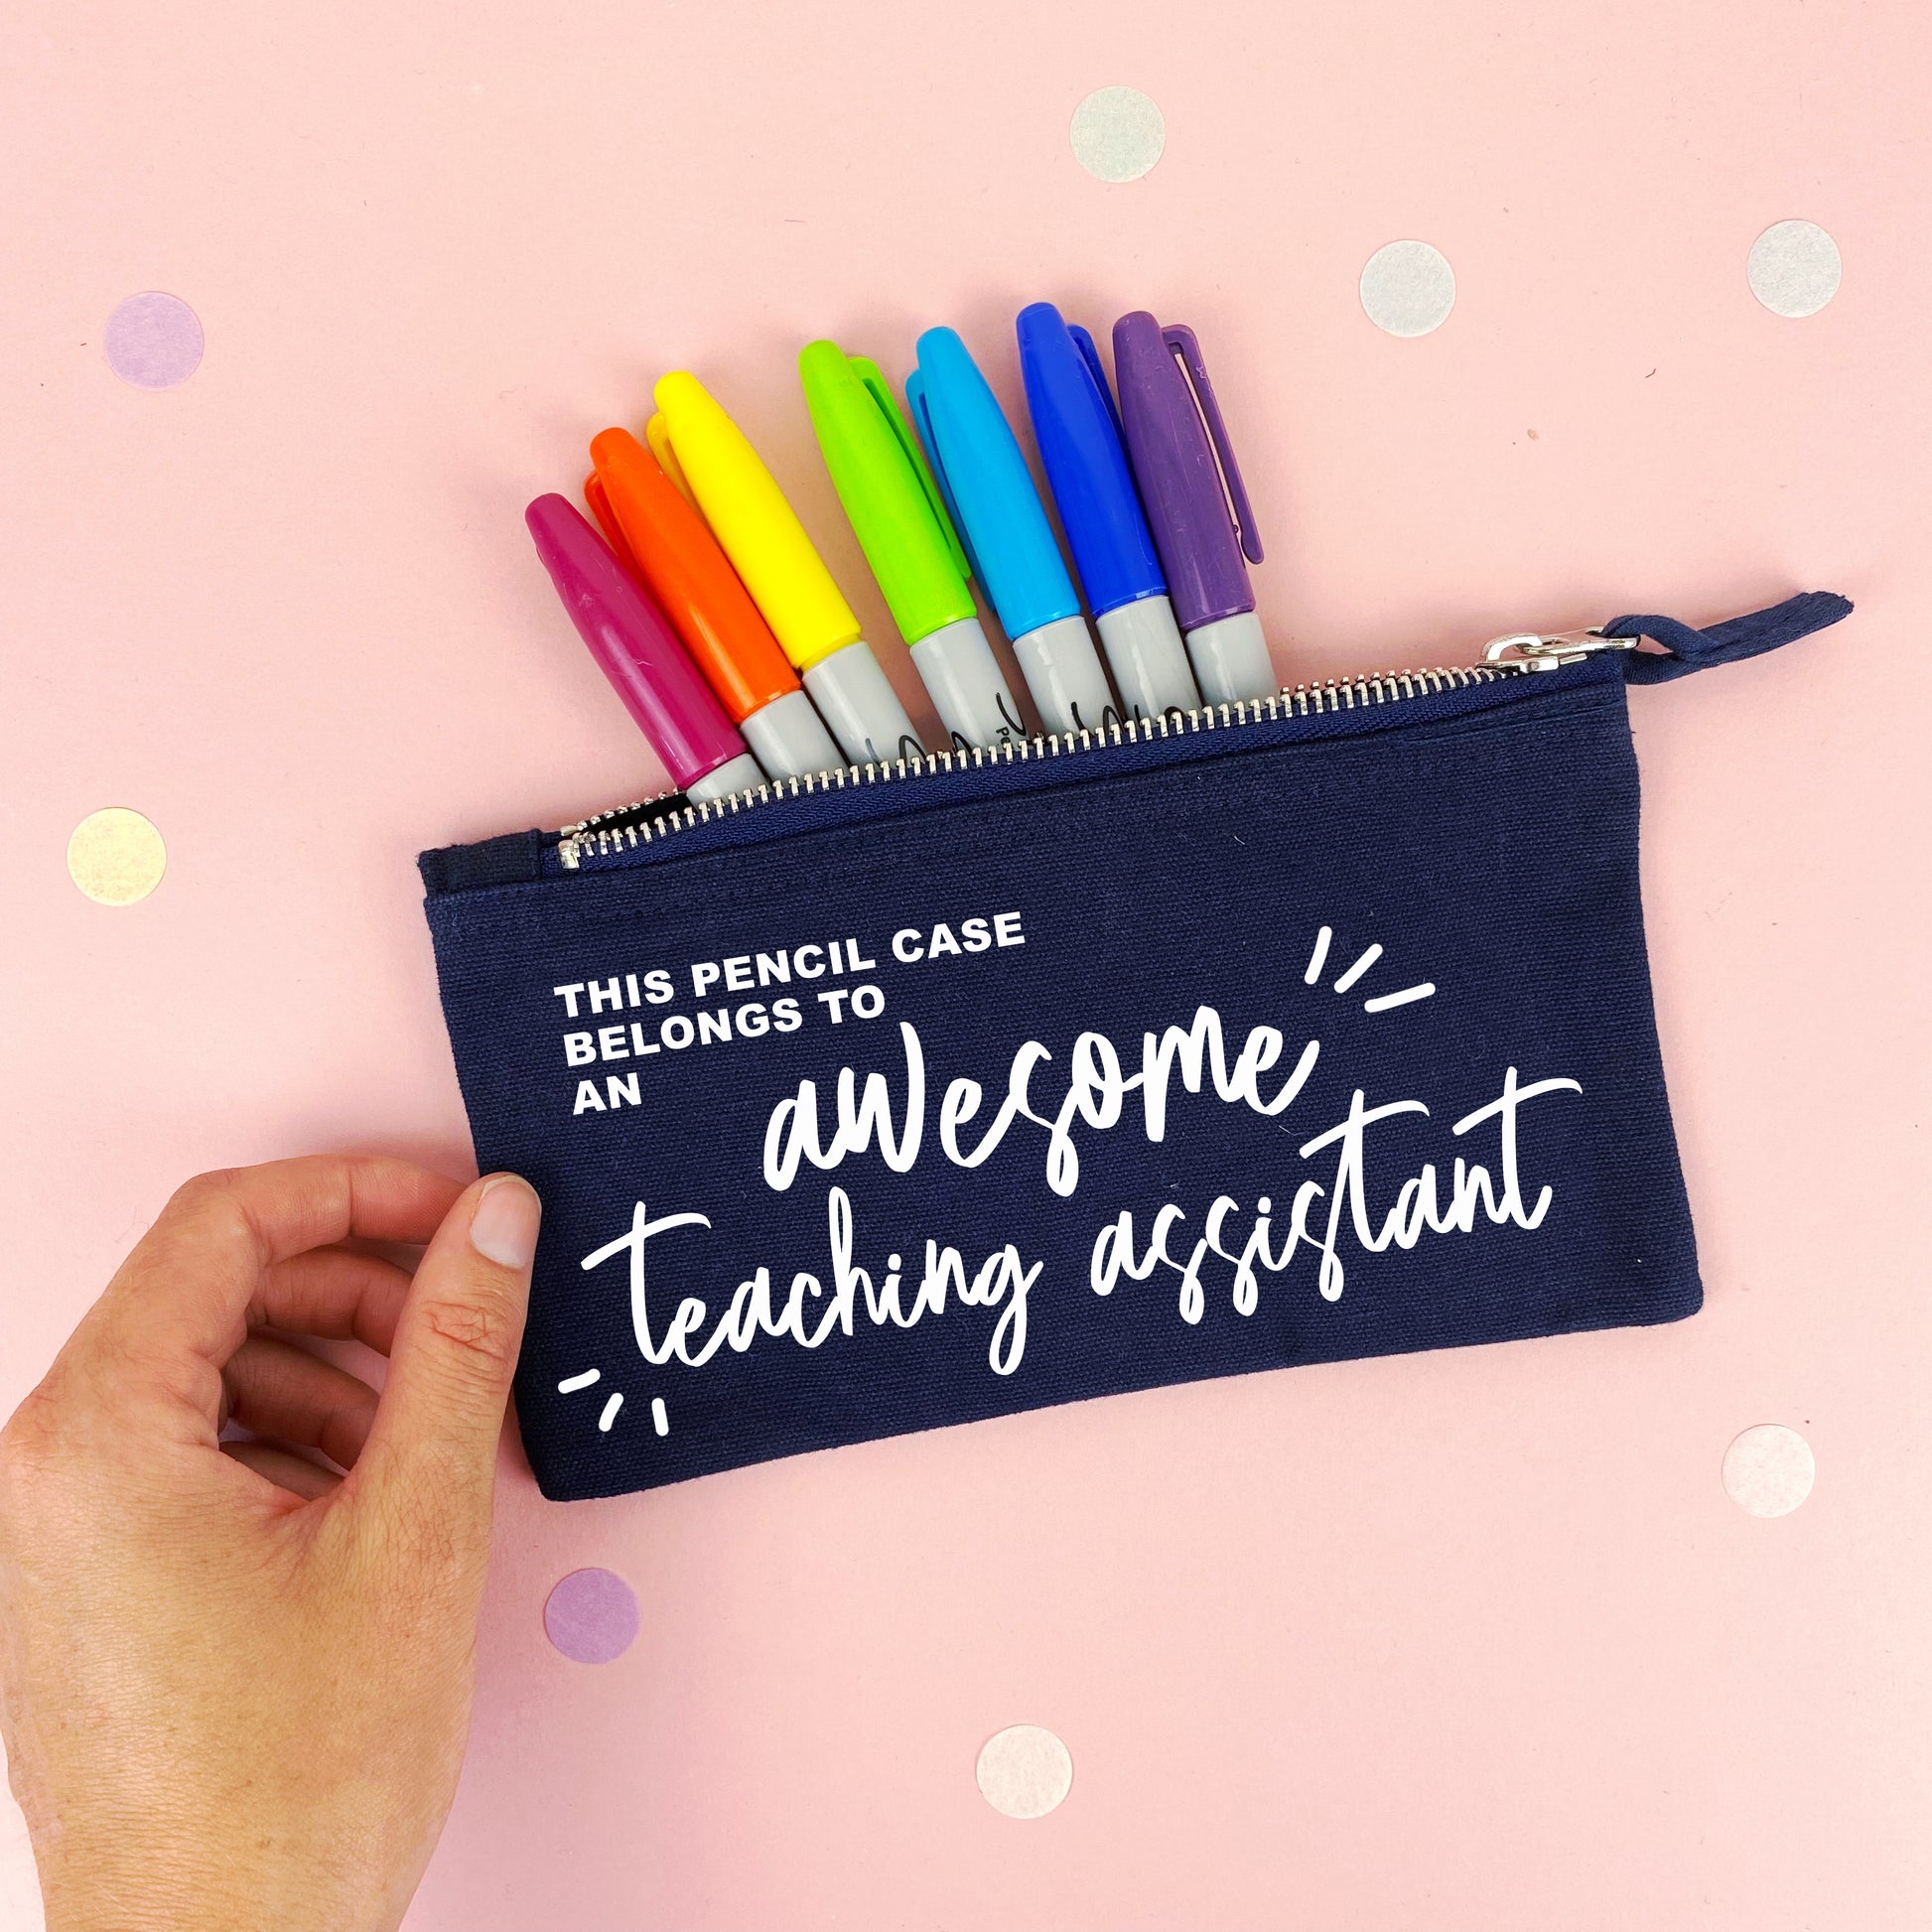 THIS PENCIL CASE
BELONGS TO
AN
awesome
teaching assistant